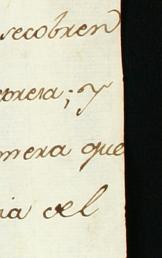 secobren
orera; y
mera que
ia del